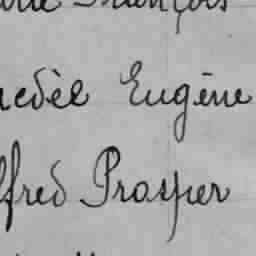 François
Eugène
lfred Prosper